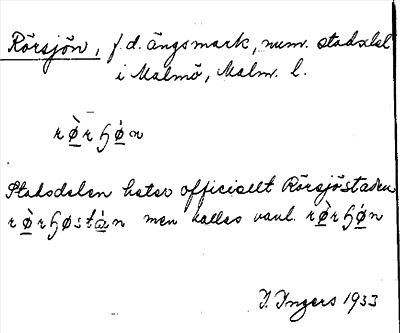 Rörsjön, f.d. ängsmark, num. stadsdel
i Malmö, Malm. l.
rø̀rɧǿn
Stadsdelen heter officiellt Rörsjöstaden
rø̀rɧøstán men kallas vanl. rø̀rɧǿn
I. Ingers 1933